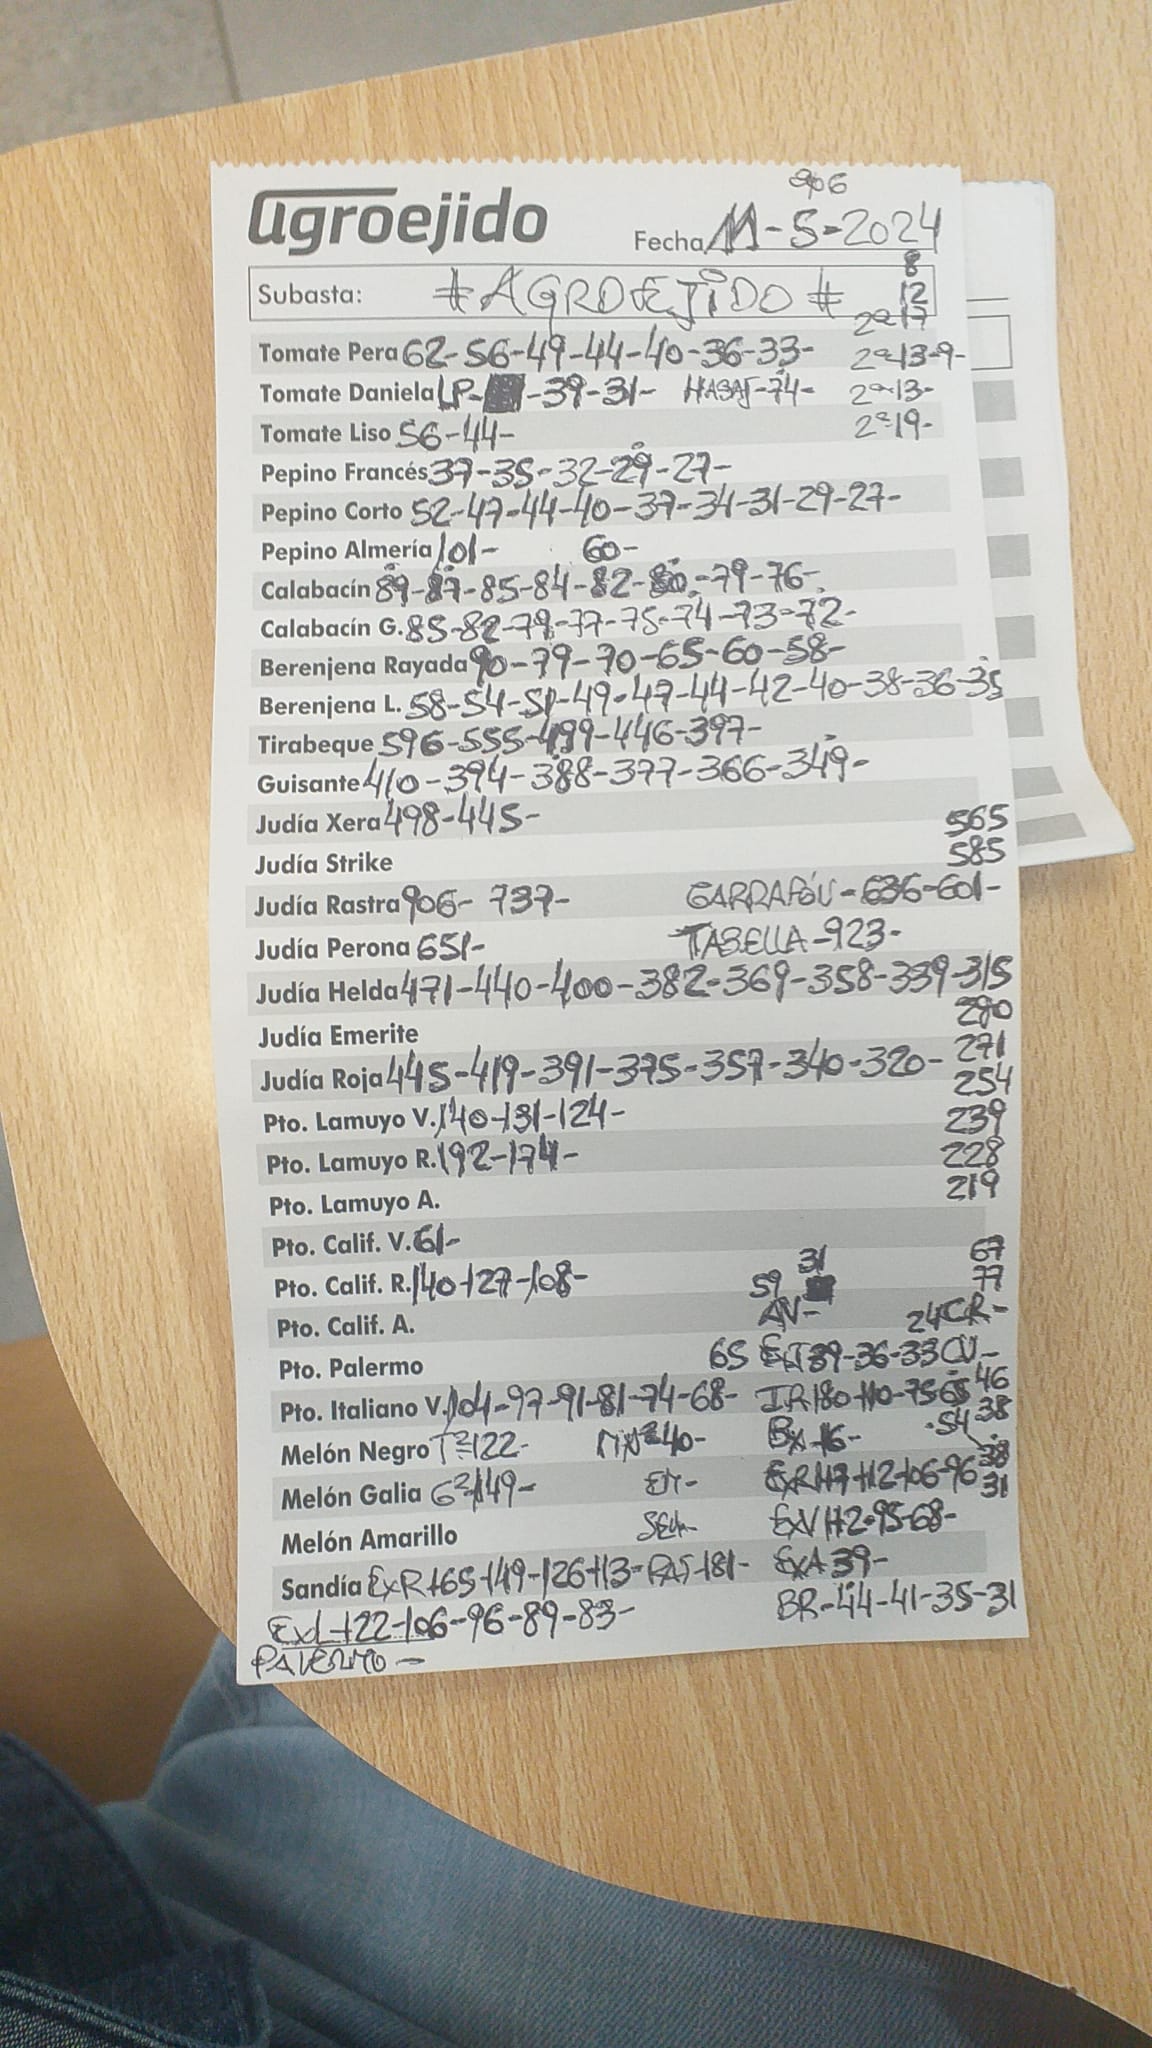 906
agroejido
Fecha 11-5-2024
8
Subasta: #AGROEJIDO# 12
2ª17
Tomate Pera 62-56-49-44-40-36-33- 2ª13-9-
Tomate Daniela LP- -39-31- HASAT-74- 2ª13-
Tomate Liso 56-44- 2ª19-
Pepino Francés 37-35-32-29-27-
Pepino Corto 52-47-44-40-37-34-31-29-27-
Pepino Almería 101- 60-
Calabacín 89-87-85-84-82-80-79-76-
Calabacín G. 85-82-79-77-75-74-73-72-
Berenjena Rayada 90-79-70-65-60-58-
Berenjena L. 58-54-51-49-47-44-42-40-38-36-35
Tirabeque 596-555-499-446-397-
Guisante 410-394-388-377-366-349-
Judía Xera 498-445- 565
Judía Strike 585
Judía Rastra 906- 737- GARRAFÓN-636-601-
Judía Perona 651- TABELLA-923-
Judía Helda 471-440-400-382-369-358-339-315
Judía Emerite 290
Judía Roja 445-419-391-375-357-340-320- 271
254
Pto. Lamuyo V. 140-131-124- 239
Pto. Lamuyo R. 192-174- 228
Pto. Lamuyo A. 219
Pto. Calif. V. 61-
31 67
Pto. Calif. R. 140-127-108- 59 77
Pto. Calif. A. AV- 24CR-
Pto. Palermo 65 39-36-33CV-
Pto. Italiano V. 104-97-91-81-74-68- IR180-110-75-65 46
Melón Negro Tª122- 40- BX-16- 54 38
Melón Galia Gª149- EM- EXR147-112-106-96 38
31
Melón Amarillo EXV112-95-68-
Sandía EXR165-149-126-113-RAJ-181- EXA39-
EXL122-106-96-89-83- BR-44-41-35-31
PALERMO-